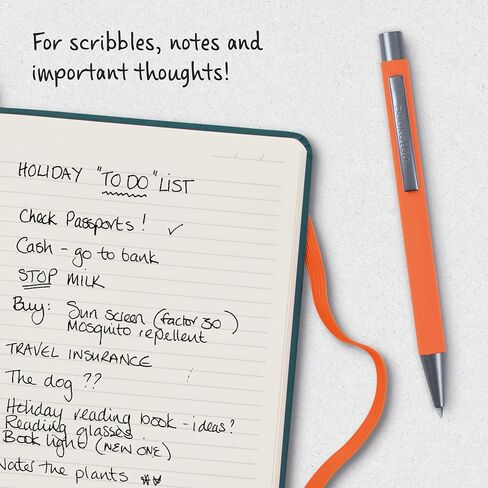 For scribbles, notes and
important thoughts!
HOLIDAY "TO DO" LIST
Check Passports! ✓
Cash - go to bank
STOP MILK
Buy: Sun screen (factor 30)
Mosquito repellent
TRAVEL INSURANCE
The dog ??
Holiday reading book - ideas?
Reading glasses
Book light (NEW ONE)
Water the plants
BOOKAROO